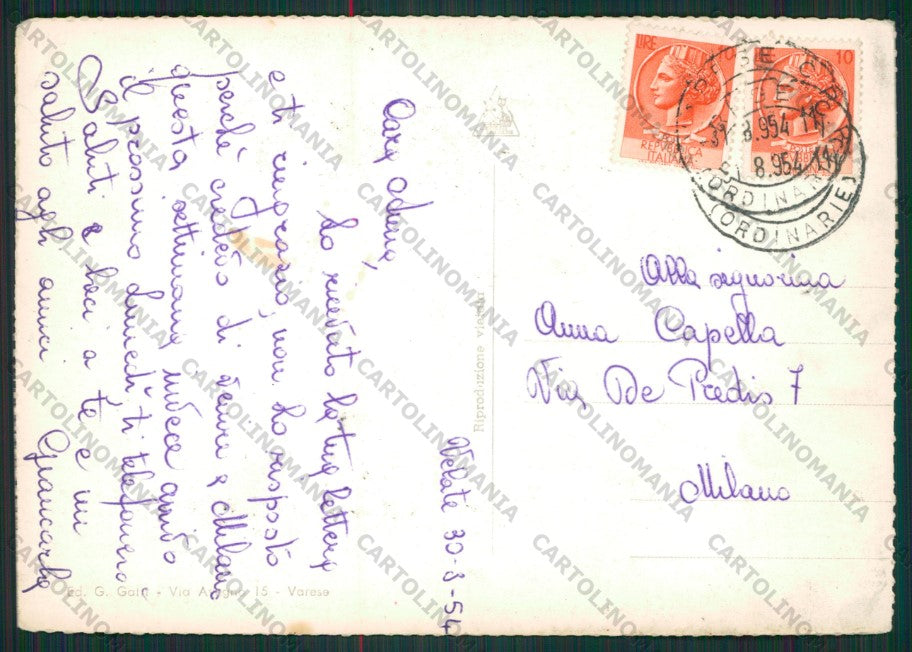 Velate 30-8-54
Cara Anna,
ho ricevuto la tua lettera
e ti ringrazio, non ho risposto
perchè credevo di venire a Milano
questa settimana, invece
il prossimo lunedì ti telefonerò
Saluti e baci a te e un
saluto agli amici Giancarlo
Alla signorina
Anna Capella
Via De Predis 7
Milano
LIRE
10
REPVBBLICA
ITALIANA
8.954
(ORDINARIE)
Riproduzione vietata
Ed. G. - Via 15 - Varese
CARTOLINOMANIA